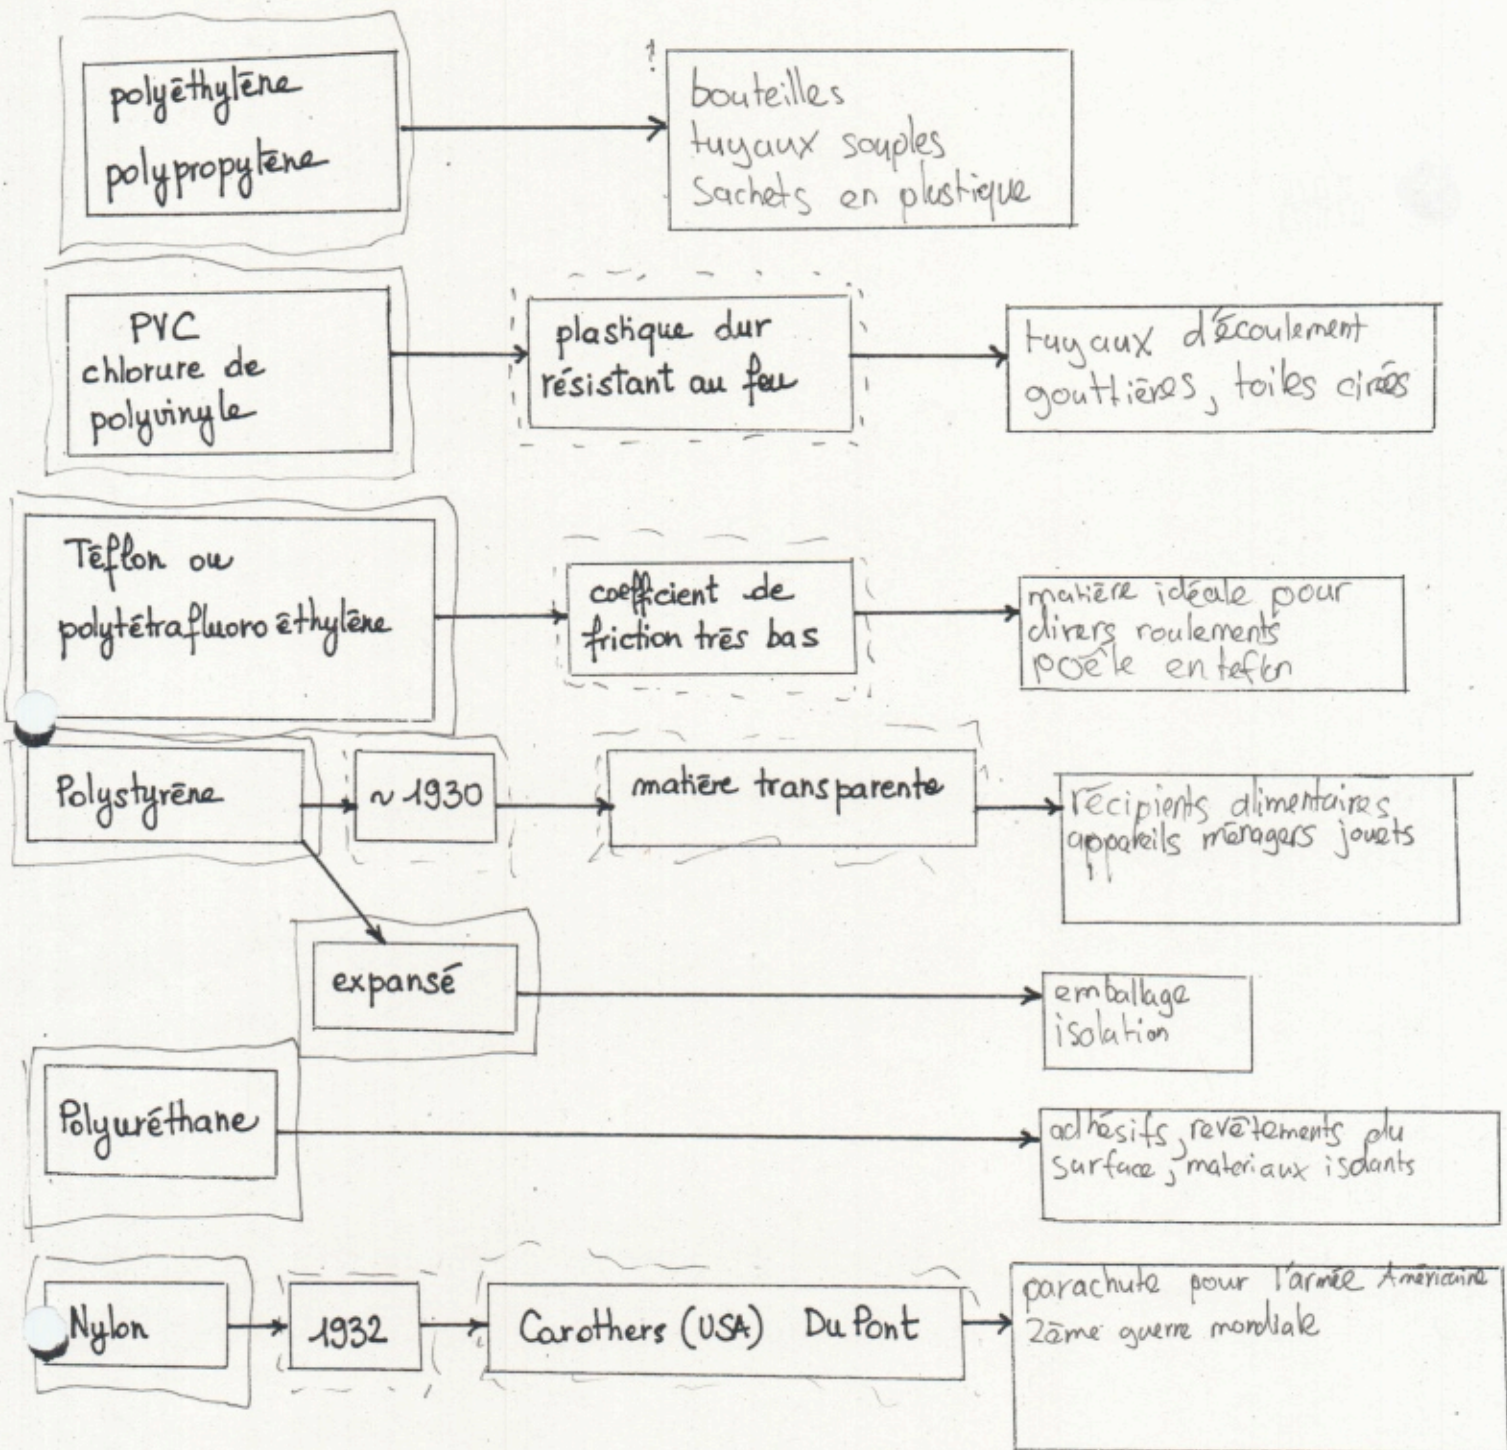 polyéthylène
polypropylène
!
bouteilles
tuyaux souples
sachets en plastique
PVC
chlorure de
polyvinyle
plastique dur
résistant au feu
tuyaux d'écoulement
gouttières, toiles cirées
Téflon ou
polytétrafluoroéthylène
coefficient de
friction très bas
matière idéale pour
divers roulements
poêle en teflon
Polystyrène
~ 1930
matière transparente
récipients alimentaires
appareils ménagers jouets
expansé
emballage
isolation
Polyuréthane
adhésifs, revêtements du
surface, materiaux isolants
Nylon
1932
Carothers (USA) DuPont
parachute pour l'armée Américaine
2ème guerre mondiale